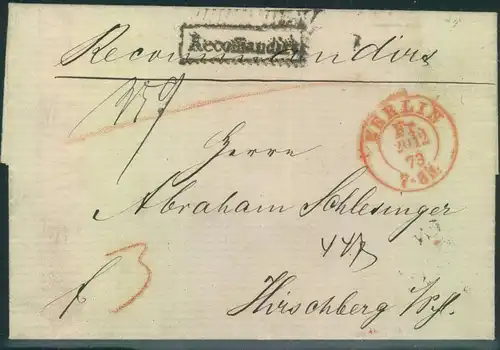 Recommandirt
Recommandirt
BERLIN
73
7-8N.
Herrn
Abraham Schlesinger
Hirschberg i/Schl.
3